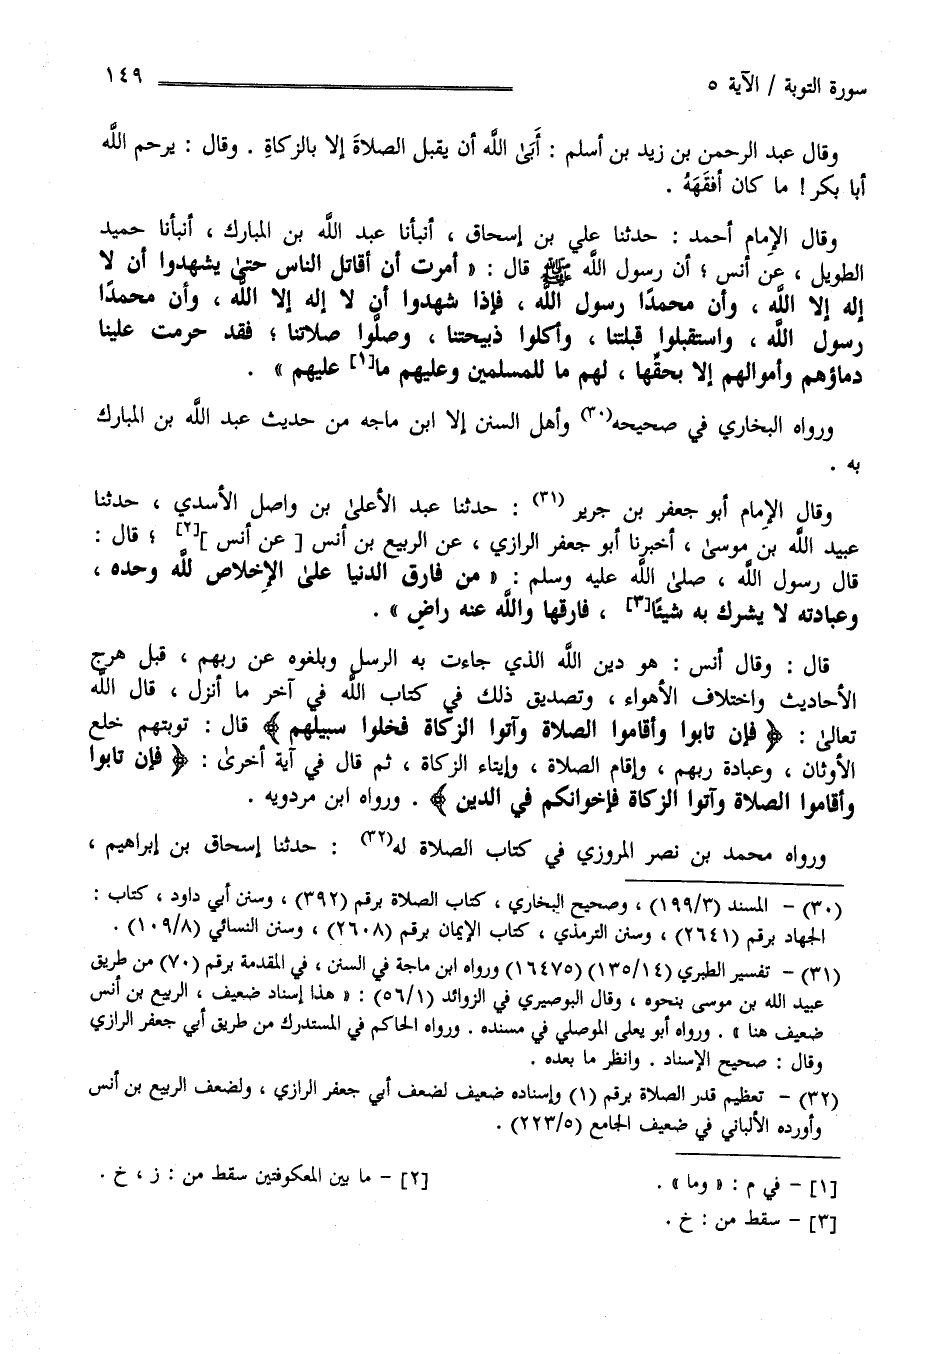 سورة التوبة / الآية ٥ ١٤٩
وقال عبد الرحمن بن زيد بن أسلم : أَبَىٰ اللَّه أن يقبل الصلاةَ إلا بالزكاةِ . وقال : يرحم اللَّه
أبا بكر ! ما كان أفقَهَهُ .
وقال الإِمام أحمد : حدثنا علي بن إسحاق ، أنبأنا عبد اللَّه بن المبارك ، أنبأنا حميد
الطويل ، عن أنس ؛ أن رسول اللَّه ﷺ قال : « أمرت أن أقاتل الناس حتىٰ يشهدوا أن لا
إله إلا اللَّه ، وأن محمدًا رسول اللَّه ، فإذا شهدوا أن لا إله إلا اللَّه ، وأن محمدًا
رسول اللَّه ، واستقبلوا قبلتنا ، وأكلوا ذبيحتنا ، وصلَّوا صلاتنا ؛ فقد حرمت علينا
دماؤهم وأموالهم إلا بحقِّها ، لهم ما للمسلمين وعليهم ما[١] عليهم » .
ورواه البخاري في صحيحه(٣٠) وأهل السنن إلا ابن ماجه من حديث عبد اللَّه بن المبارك
به .
وقال الإِمام أبو جعفر بن جرير (٣١) : حدثنا عبد الأعلىٰ بن واصل الأسدي ، حدثنا
عبيد اللَّه بن موسىٰ ، أخبرنا أبو جعفر الرازي ، عن الربيع بن أنس [ عن أنس ][٢] ؛ قال :
قال رسول اللَّه ، صلىٰ اللَّه عليه وسلم : « من فارق الدنيا علىٰ الإِخلاص للَّه وحده ،
وعبادته لا يشرك به شيئًا[٣] ، فارقها واللَّه عنه راضٍ » .
قال : وقال أنس : هو دين اللَّه الذي جاءت به الرسل وبلغوه عن ربهم ، قبل هرج
الأحاديث واختلاف الأهواء ، وتصديق ذلك في كتاب اللَّه في آخر ما أنزل ، قال اللَّه
تعالىٰ : ﴿ فإن تابوا وأقاموا الصلاة وآتوا الزكاة فخلوا سبيلهم ﴾ قال : توبتهم خلع
الأوثان ، وعبادة ربهم ، وإقام الصلاة ، وإيتاء الزكاة ، ثم قال في آية أخرىٰ : ﴿ فإن تابوا
وأقاموا الصلاة وآتوا الزكاة فإخوانكم في الدين ﴾ . ورواه ابن مردويه .
ورواه محمد بن نصر المروزي في كتاب الصلاة له(٣٢) : حدثنا إسحاق بن إبراهيم ،
(٣٠) – المسند (١٩٩/٣) ، وصحيح البخاري ، كتاب الصلاة برقم (٣٩٢) ، وسنن أبي داود ، كتاب :
الجهاد برقم (٢٦٤١) ، وسنن الترمذي ، كتاب الإيمان برقم (٢٦٠٨) ، وسنن النسائي (١٠٩/٨) .
(٣١) – تفسير الطبري (١٣٥/١٤) (١٦٤٧٥) ورواه ابن ماجة في السنن ، في المقدمة برقم (٧٠) من طريق
عبيد الله بن موسى بنحوه ، وقال البوصيري في الزوائد (٥٦/١) : « هذا إسناد ضعيف ، الربيع بن أنس
ضعيف هنا » . ورواه أبو يعلى الموصلي في مسنده . ورواه الحاكم في المستدرك من طريق أبي جعفر الرازي
وقال : صحيح الإسناد . وانظر ما بعده .
(٣٢) – تعظيم قدر الصلاة برقم (١) وإسناده ضعيف لضعف أبي جعفر الرازي ، ولضعف الربيع بن أنس
وأورده الألباني في ضعيف الجامع (٢٢٣/٥) .
[١] – في م : « وما » . [٢] – ما بين المعكوفتين سقط من : ز ، خ .
[٣] – سقط من : خ .